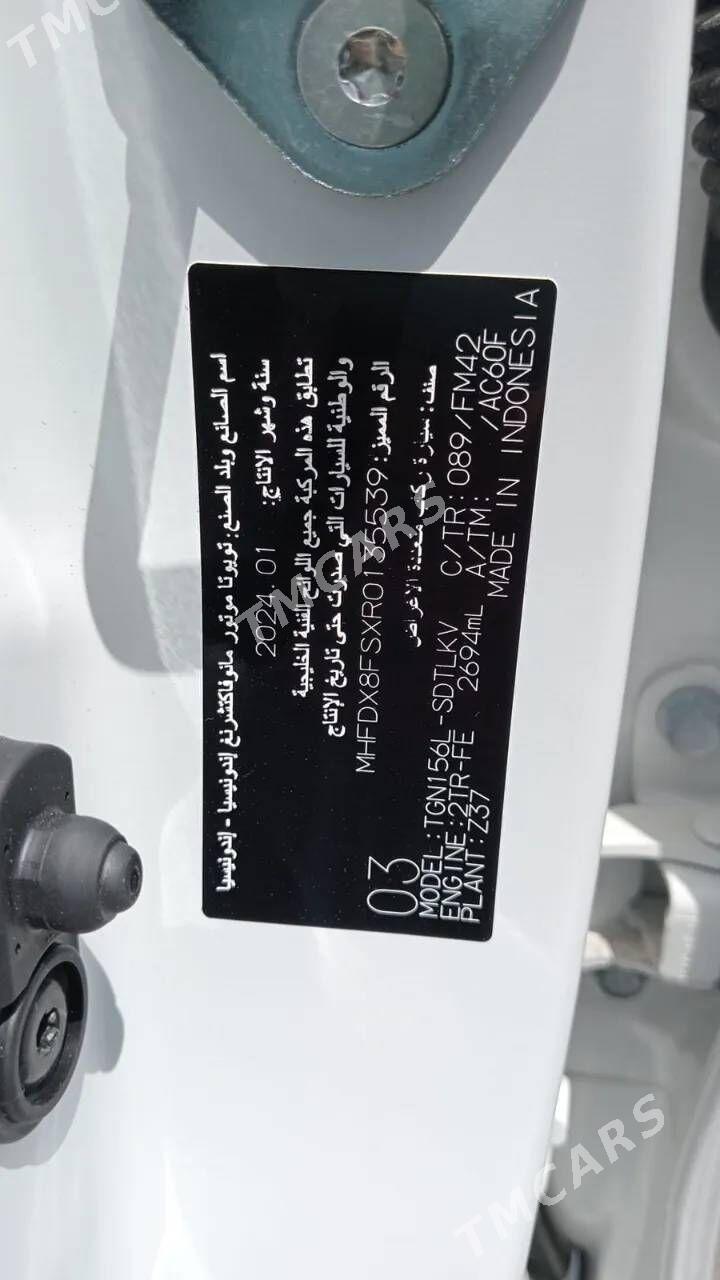 اسم الصانع وبلد الصنع: تويوتا موتور مانوفاكتشرنغ إندونيسيا - إندونيسيا
سنة وشهر الإنتاج: 2024.01
تطابق هذه المركبة جميع اللوائح الفنية الخليجية
والوطنية للسيارات التي صدرت حتى تاريخ الإنتاج
الرقم المميز: MHFDX8FSXR0135539
صنف: سيارة ركاب متعددة الأغراض
03
MODEL:TGN156L-SDTLKV C/TR:089/FM42
ENGINE:2TR-FE 2694mL A/TM: /AC60F
PLANT:Z37 MADE IN INDONESIA
TMCARS
TMCARS
TMCARS